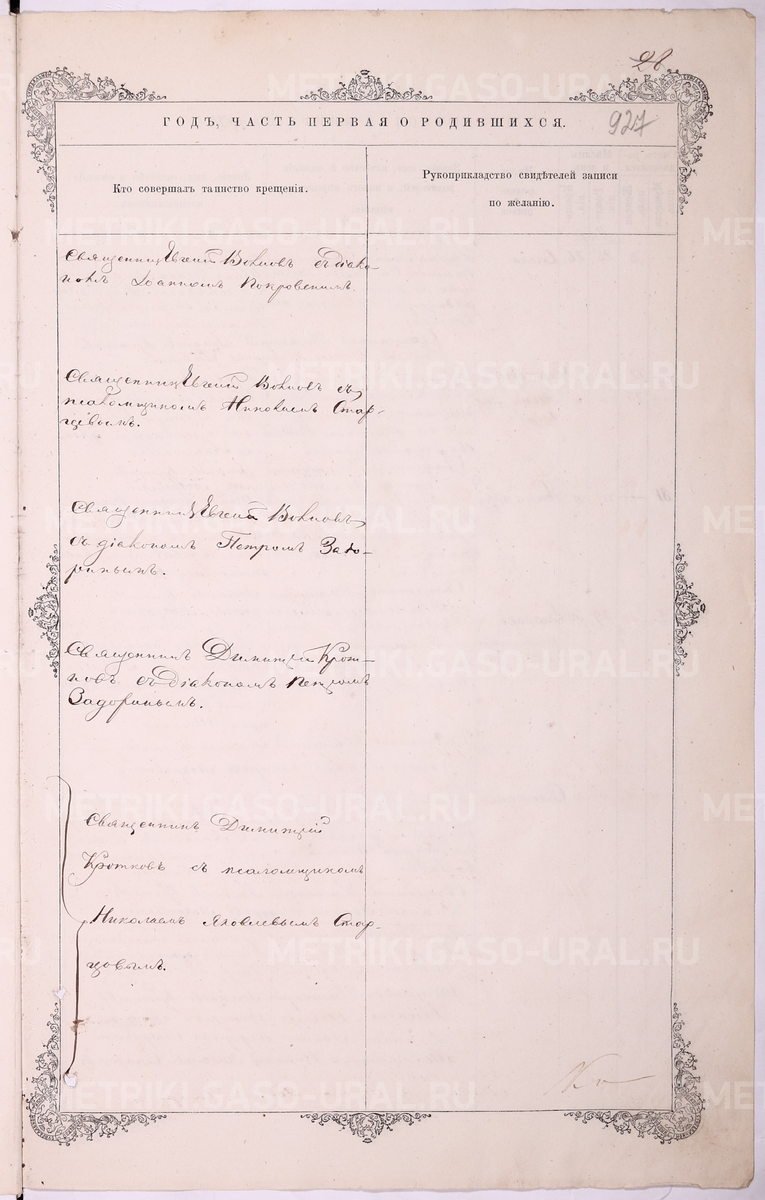 28
ГОДЪ, ЧАСТЬ ПЕРВАЯ О РОДИВШИХСЯ.
927
Кто совершалъ таинство крещенія.
Рукоприкладство свидѣтелей записи
по желанію.
Священникъ Евгеній съ діако-
номъ Іоанномъ Покровскимъ.
Священникъ Евгеній съ
псаломщикомъ Николаемъ Стар-
цевымъ.
Священникъ Евгеній
съ діакономъ Петромъ Задо-
ринымъ.
Священникъ Димитрій Крот-
ковъ съ діакономъ Петромъ
Задоринымъ.
Священникъ Димитрій
Кротковъ съ псаломщикомъ
Николаемъ Яковлевымъ Стар-
цовымъ.
METRIKI.GASO-URAL.RU